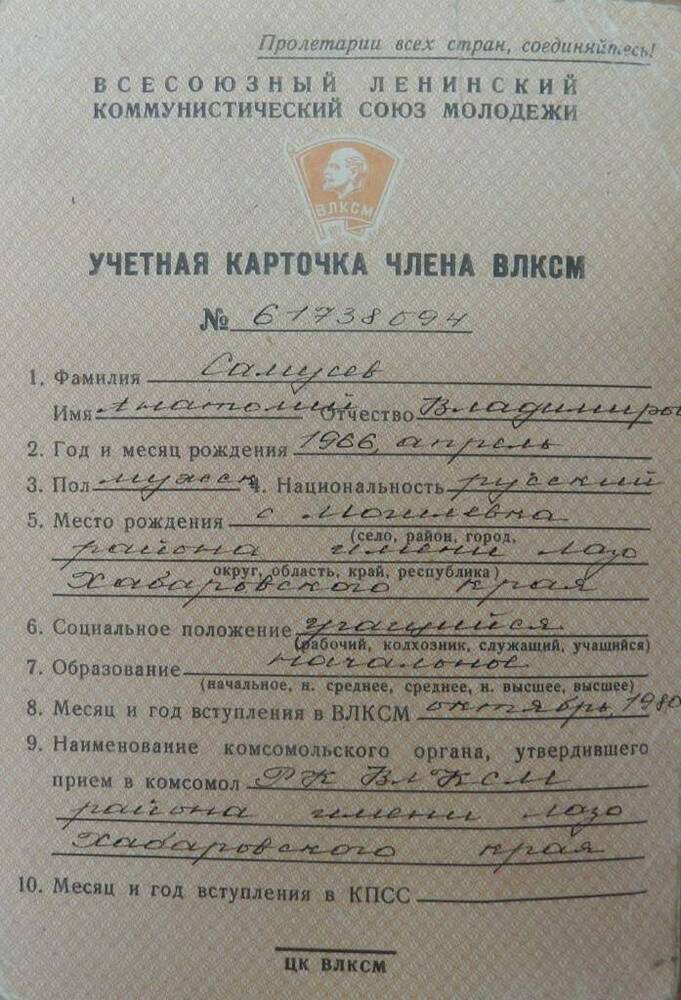 Пролетарии всех стран, соединяйтесь!
ВСЕСОЮЗНЫЙ ЛЕНИНСКИЙ
КОММУНИСТИЧЕСКИЙ СОЮЗ МОЛОДЕЖИ
ВЛКСМ
УЧЕТНАЯ КАРТОЧКА ЧЛЕНА ВЛКСМ
№ 61738094
1. Фамилия Самусев
Имя Анатолий Отчество Владимиро
2. Год и месяц рождения 1966, апрель
3. Пол мужск 4. Национальность русский
5. Место рождения с Могилевка
(село, район, город,
района имени Лазо
округ, область, край, республика)
Хабаровского края
6. Социальное положение учащийся
(рабочий, колхозник, служащий, учащийся)
7. Образование начальное
(начальное, н. среднее, среднее, н. высшее, высшее)
8. Месяц и год вступления в ВЛКСМ октябрь, 1980
9. Наименование комсомольского органа, утвердившего
прием в комсомол РК ВЛКСМ
района имени Лазо
Хабаровского края
10. Месяц и год вступления в КПСС
ЦК ВЛКСМ